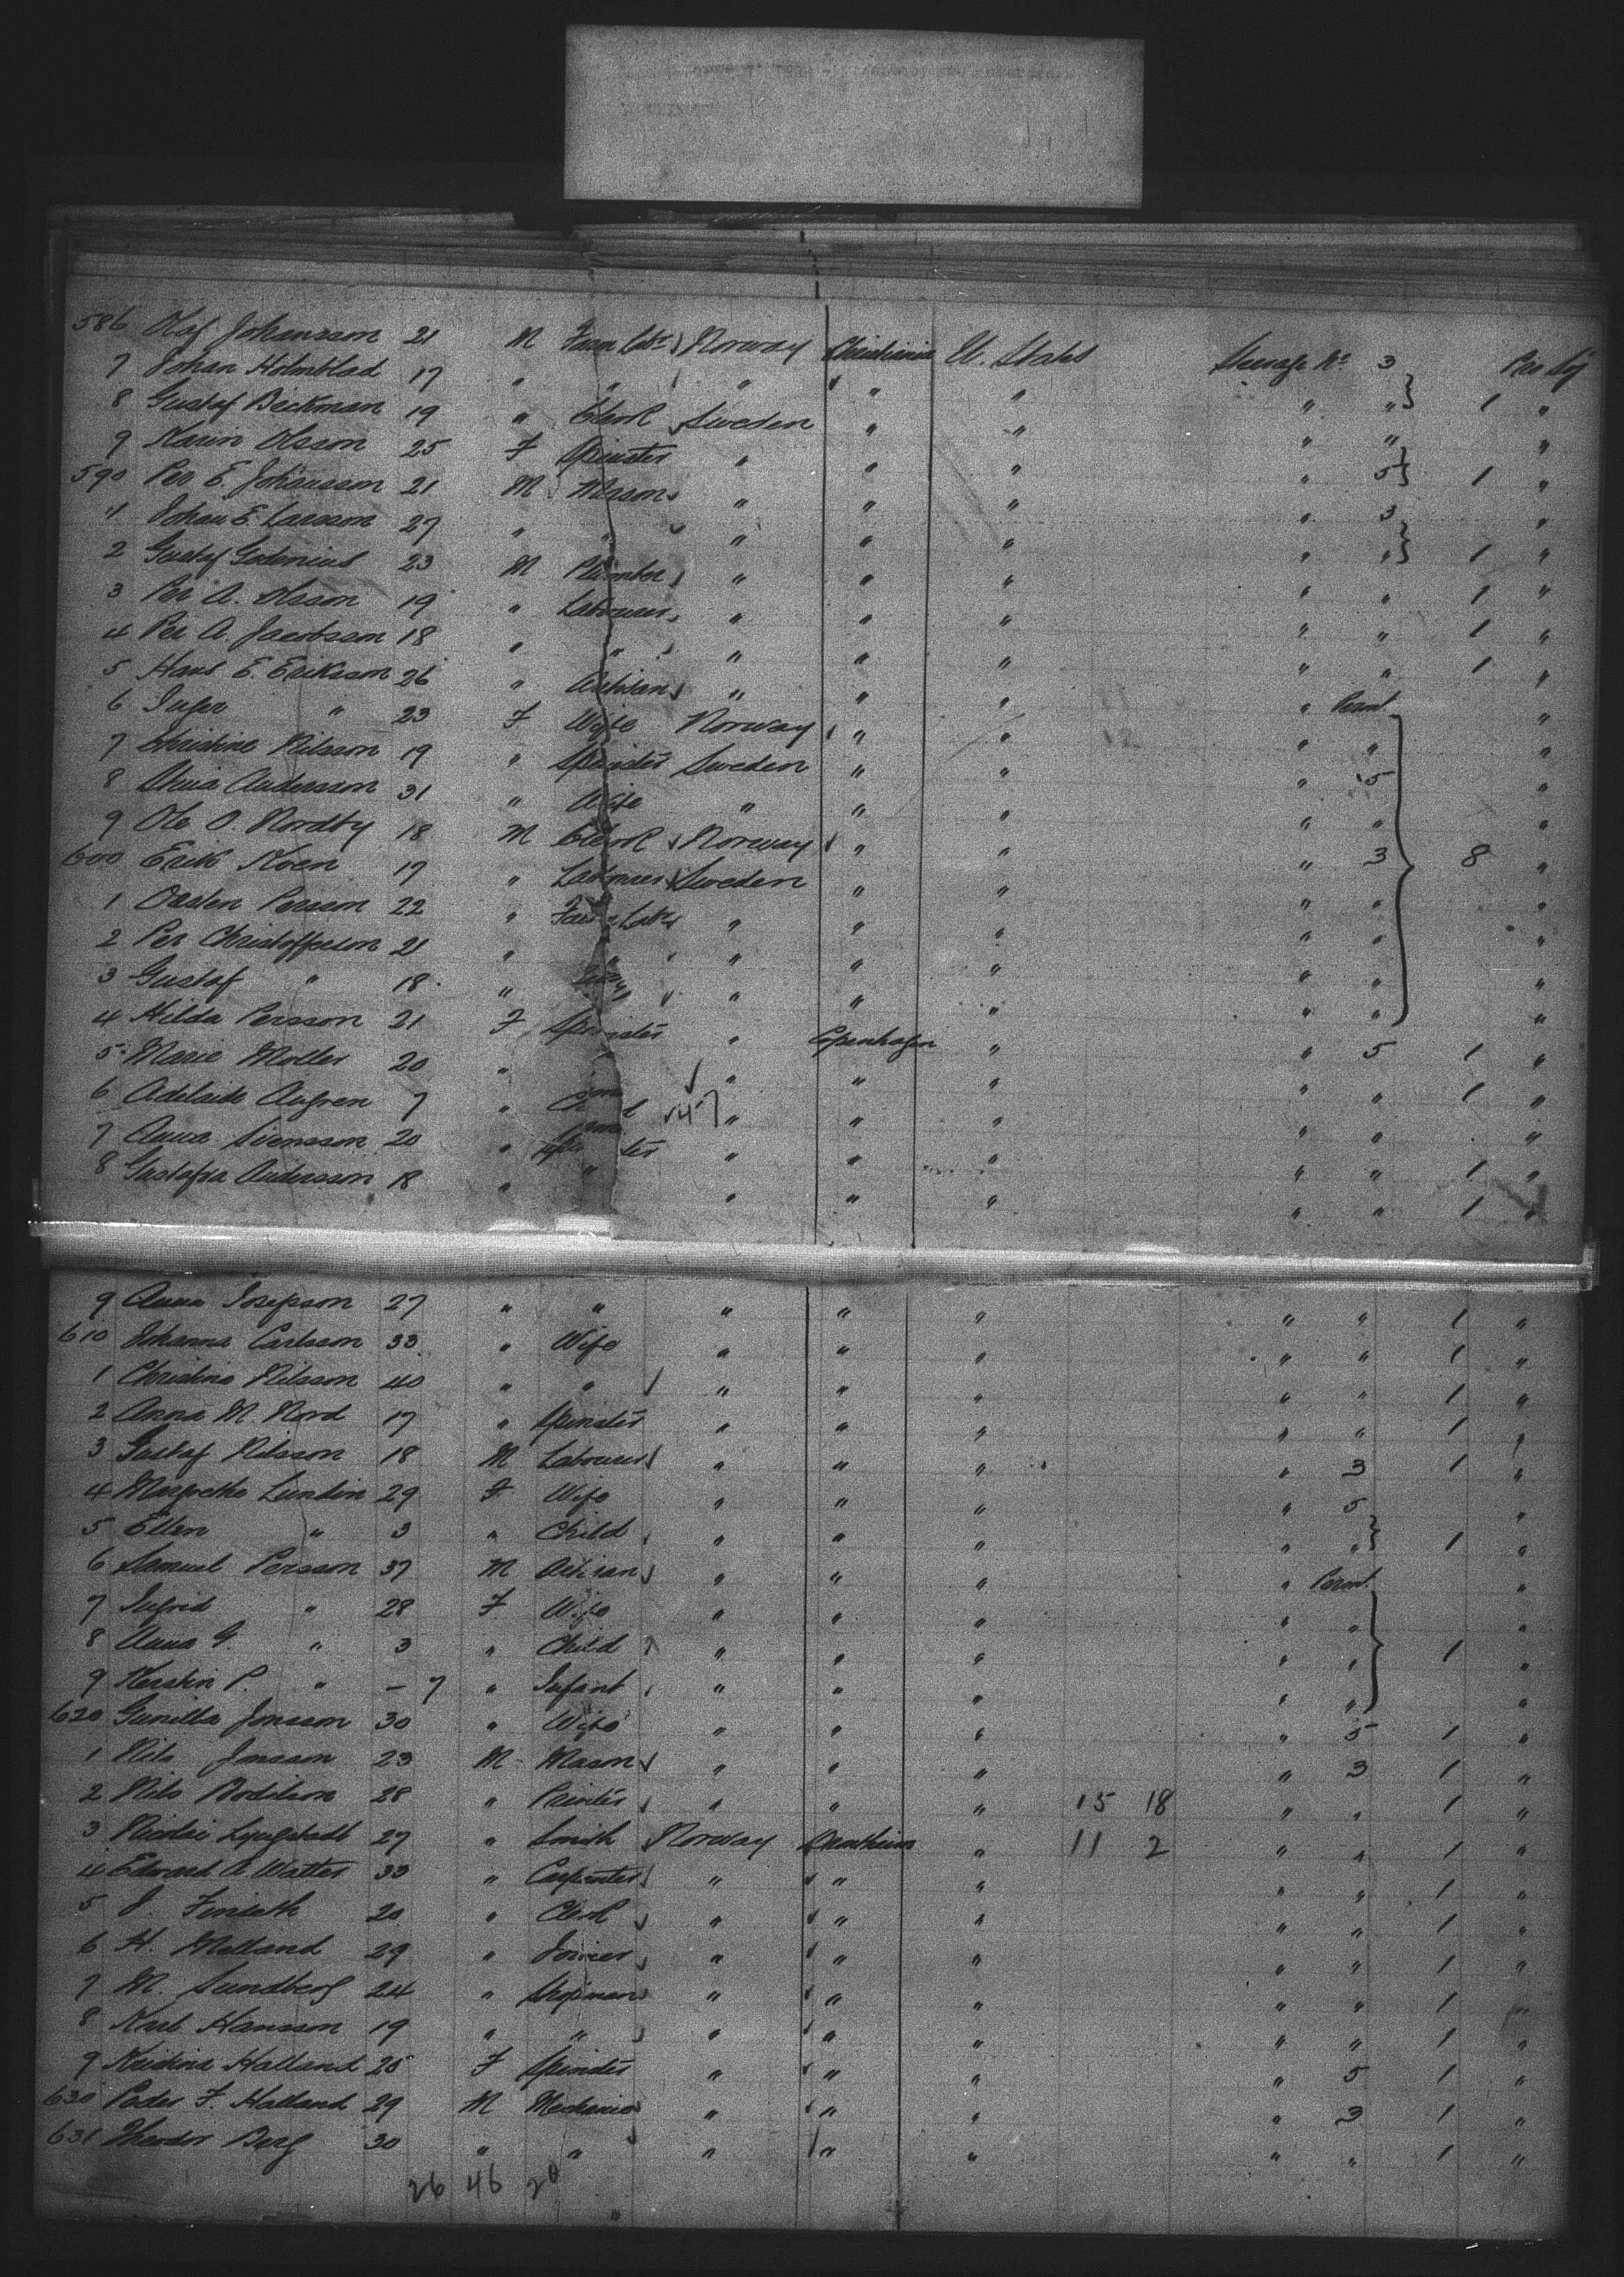 586 Olaf Johansson 21 M Farm Labr Norway Christiania U. States Steerage No 3 Pro Soj
7 Johan Holmblad 17 " " " " " " " } 1 "
8 Gustaf Beckman 19 " Clerk Sweden " " " " "
9 Karin Olsson 25 F Spinster " " " " 5 } 1 "
590 Per E. Johansson 21 M Mason " " " " 3 "
1 Johan E. Larsson 27 " " " " " " " } 1 "
2 Gustaf Godenius 23 M Plumber " " " " " 1 "
3 Per A. Olsson 19 " Labourer " " " " " 1 "
4 Per A. Jacobsson 18 " " " " " " " 1 "
5 Hans E. Eriksson 26 " Artisan " " " " Permt "
6 Inger " 23 F Wife Norway " " " " "
7 Christine Nilsson 19 " Spinster Sweden " " " 5 "
8 Anna Andersson 31 " Wife " " " " " "
9 Ole O. Nordby 18 M Clerk Norway " " " 3 8 "
600 Erik Koen 17 " Labourer Sweden " " " " "
1 Persson 22 " Farm Labr " " " " " "
2 Per Christofferson 21 " " " " " " " "
3 Gustaf " 18 " " " " " " " "
4 Hilda Persson 21 F Spinster " Copenhagen " " 5 1 "
5 Marie Moller 20 " " " " " " 1 "
6 Adelaide Augren 7 " Child " " " " " "
7 Anna Svensson 20 " Spinster " " " " " 1 "
8 Gustafva Andersson 18 " " " " " " " 1 "
9 Anna Josepson 27 " " " " " " " 1 "
610 Johanna Carlsson 33 " Wife " " " " " 1 "
1 Christina Nilsson 40 " " " " " " " 1 "
2 Anna M. Nord 17 " Spinster " " " " " 1 "
3 Gustaf Nilsson 18 M Labourer " " " " 3 1 "
4 Margretha Lundin 29 F Wife " " " " 5 "
5 Ellen " 3 " Child " " " " " } 1 "
6 Samuel Persson 37 M Artisan " " " " Permt "
7 Ingrid " 28 F Wife " " " " " "
8 Anna G. " 3 " Child " " " " " 1 "
9 Kerstin P. " – 7 " Infant " " " " " "
620 Gunilla Jonsson 30 " Wife " " " " 5 1 "
1 Nils Jonsson 23 M Mason " " " " 3 1 "
2 Nils Bodilson 28 " Painter " " " 15 18 " " 1 "
3 Nicolai 27 " Smith Norway Drontheim " 11 2 " " 1 "
4 Edward A. Watter 33 " Carpenter " " " " " 1 "
5 J. 20 " Clerk " " " " " 1 "
6 H. Melland 29 " Joiner " " " " " 1 "
7 M. Sundberg 24 " Shopman " " " " " 1 "
8 Karl Hansson 19 " " " " " " " 1 "
9 Kristina Halland 25 F Spinster " " " " 5 1 "
630 Peder F. Halland 29 M Mechanic " " " " 3 1 "
631 Theodor Berg 30 " " " " " " " 1 "
26 46 20